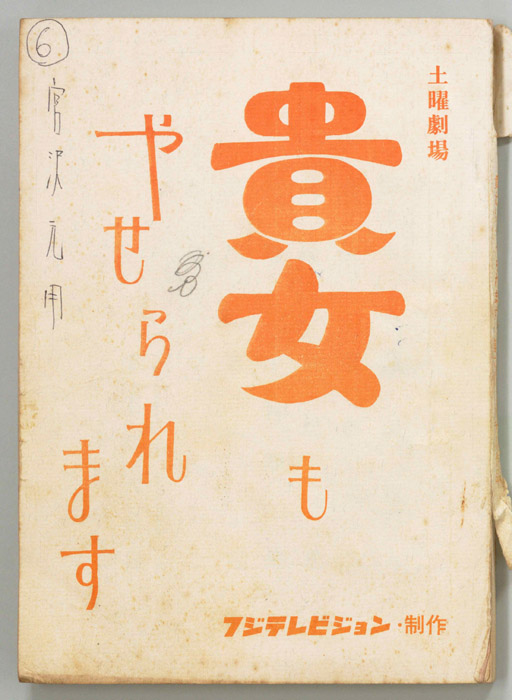 土曜劇場
貴女も
やせられ
ます
フジテレビジョン・制作
⑥
宮沢元用